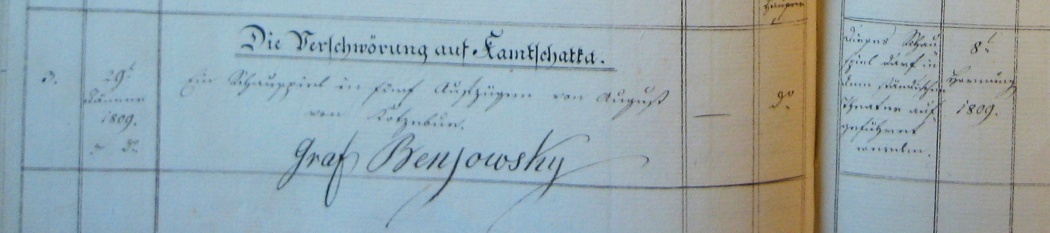 Die Verschwörung auf Kamtschatka.
3.
29t
Jänner
1809.
Ein Schauspiel in fünf Aufzügen von August
von Kotzebue.
Graf Benjowsky
—
do
Dieses Schau
spiel darf in
dem ständischen
Theater auf-
geführet
werden.
8t
Hornung
1809.